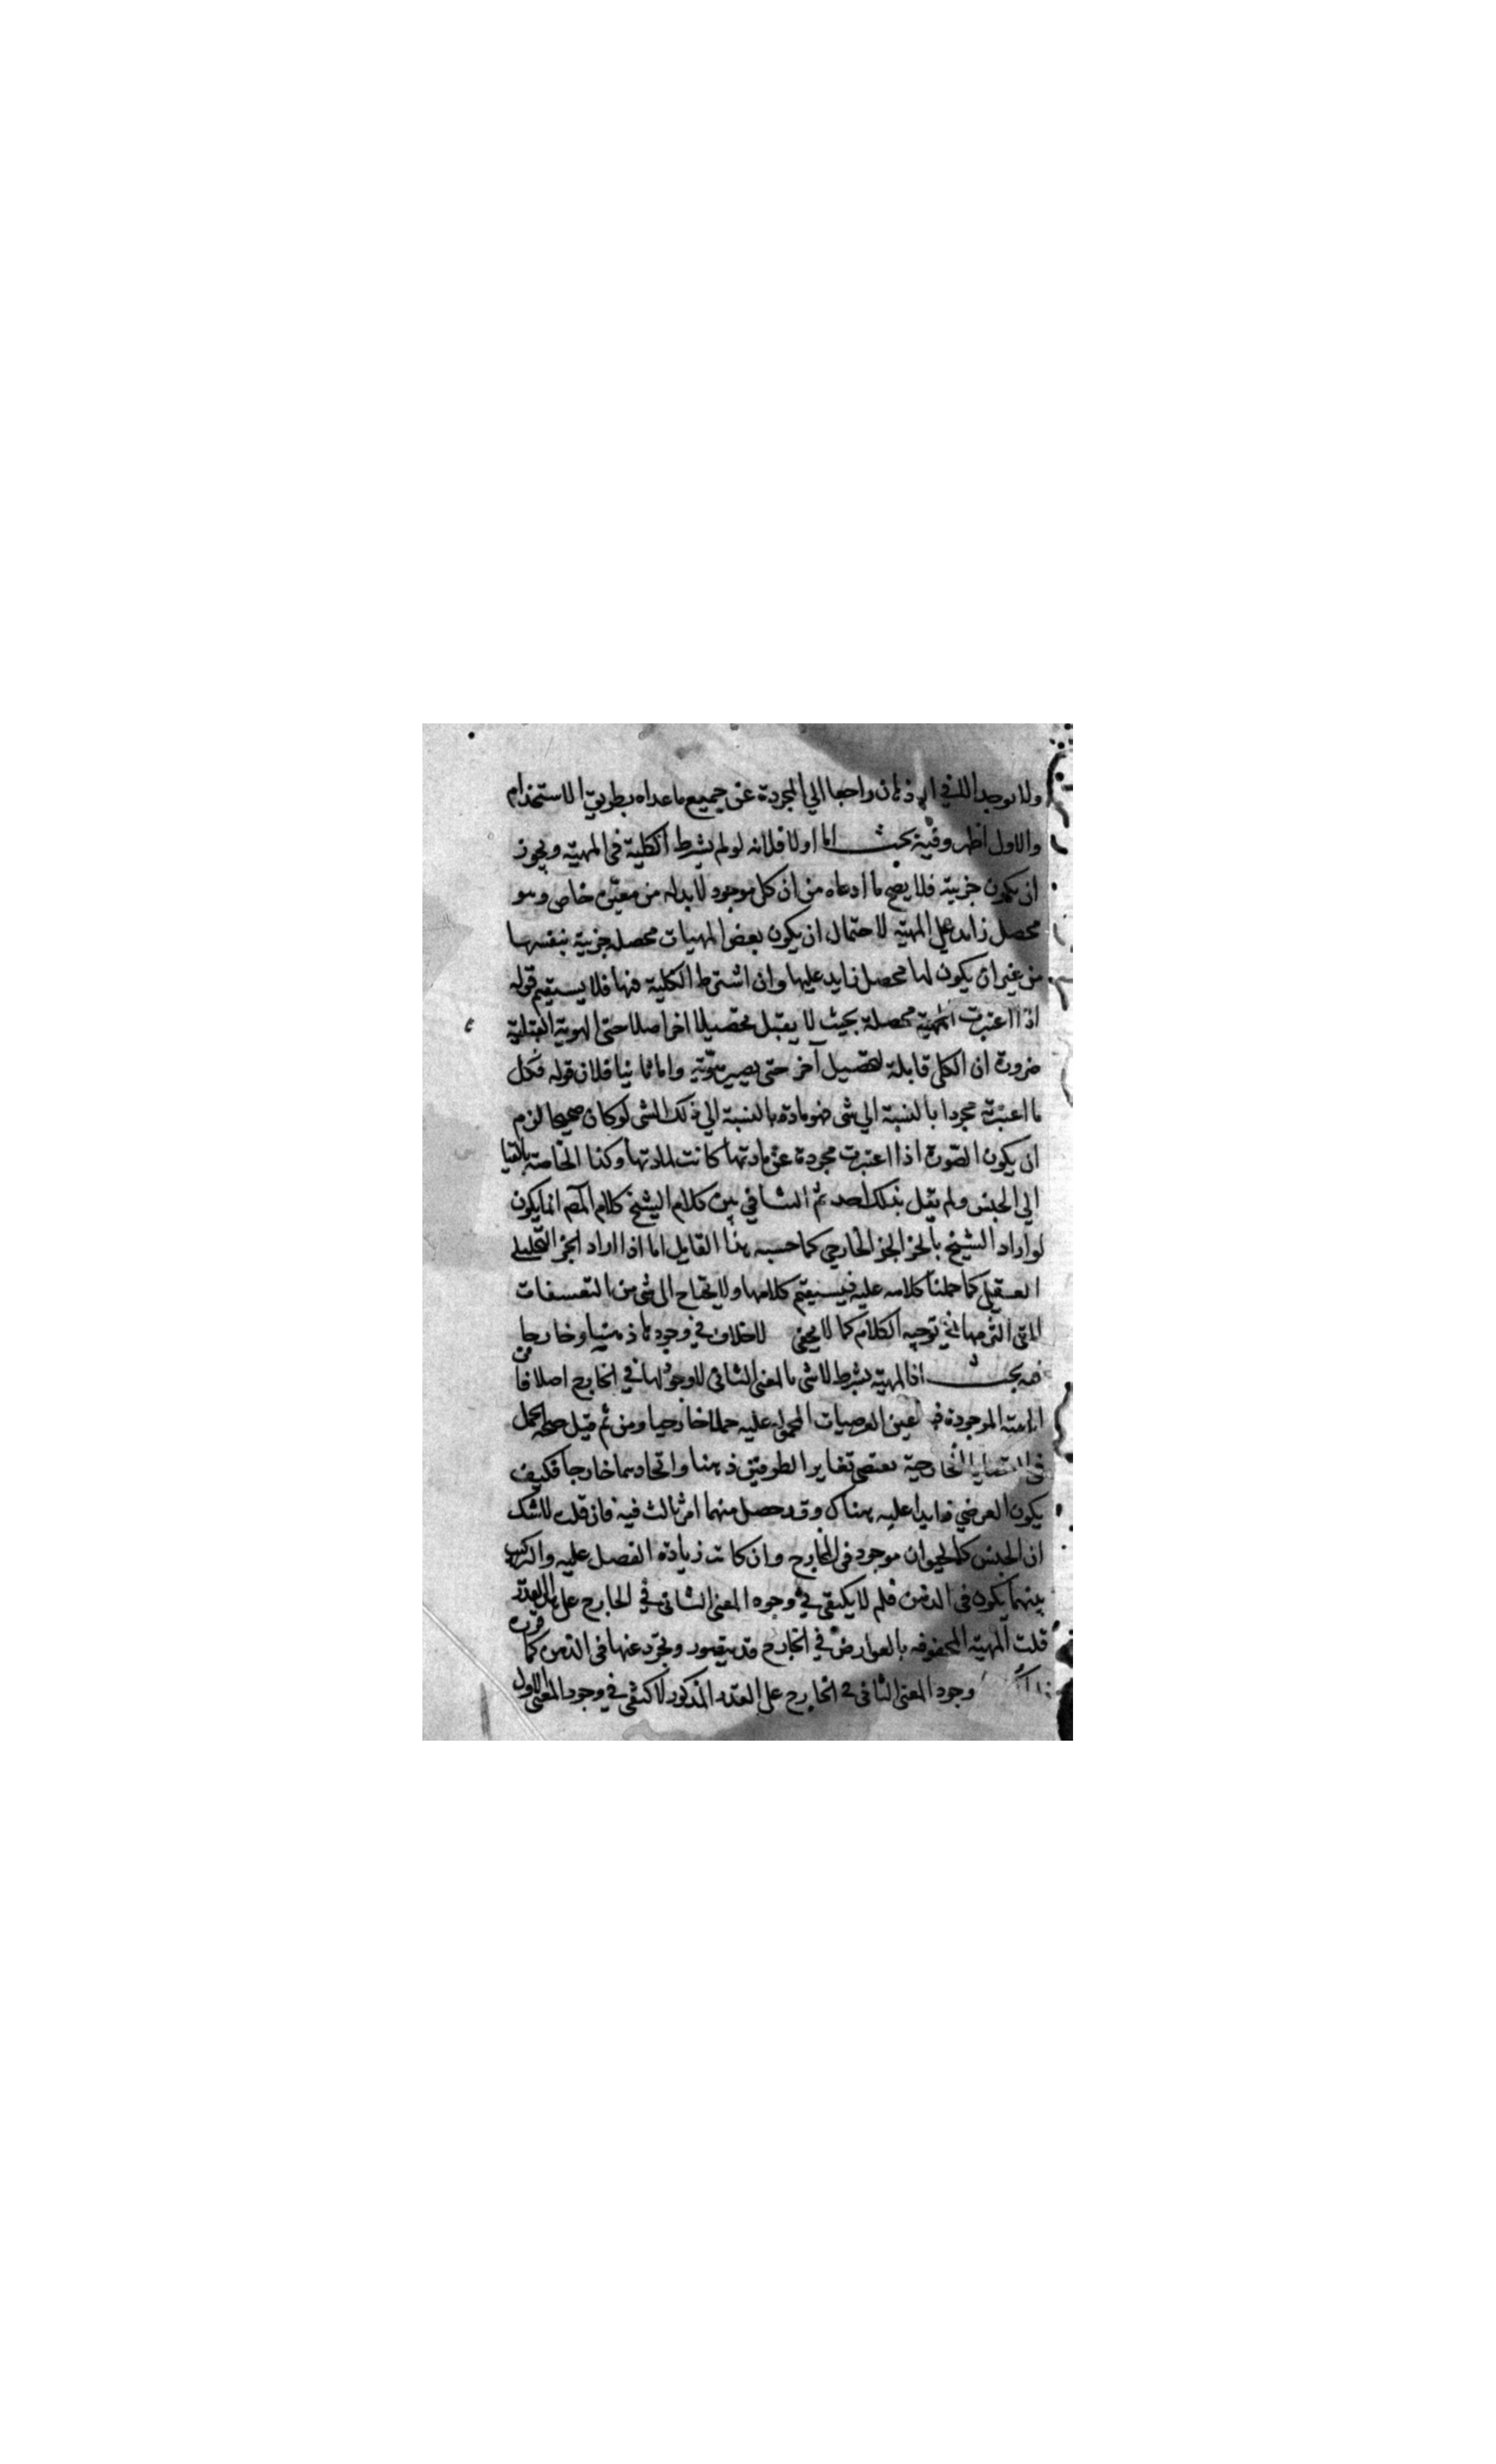 ولا توجد الا في الاذهان راجعا الي المجردة عن جميع ما عداه بطريق الاستخدام
والاول اظهر وفيه بحث اما اولا فلانه لو لم يشرط الكلية في المهية ويجوز
ان يكون جزيية فلا يصح ما ادعاه من ان كل موجود لا بد له من معين خاص وهو
محصل زايد علي المهية لاحتمال ان يكون بعض المهيات محصلة جزيية بنفسها
من غير ان يكون لها محصل زايد عليها وان اشترط الكلية فيها فلا يستقيم قوله
اذا اعتبرت المهية محصلة بحيث لا يقبل تحصيلا اخر اصلا حتى الهوية العقلية
ضرورة ان الكلي قابلة لتحصيل آخر حتى يصير هوية واما ثانيا فلان قوله فكل
ما اعبرته مجردا بالنسبة الي شي فهو مادة بالنسبة الي ذلك الشي لو كان صحيحا لزم
ان يكون الصورة اذا اعتبرت مجردة عن مادتها كانت لمادتها وكذا الخاصة بالقيا
الي الجنس ولم يقل بذلك احد ثم التنافي بين كلام الشيخ كلام المص انما يكون
لو اراد الشيخ بالجز الجز الخارجي كما حسبه هذا القايل اما اذا اراد الجز التحليلي
العقلي كما حملنا كلامه عليه فيستقيم كلامها ولا يحتاج الى شي من التعسفات
التي التزمها في توجيه الكلام كما لا يخفى للاخلاف في وجودها ذهنيا وخارجا
فيه بحث اذ المهية بشرط لا شي بالمعنى الثاني لا وجود لها في الخارج اصلا فان
المهية الموجودة فيه عين العرضيات المحمولة عليه حملا خارجيا ومن ثم قيل صحة الحمل
في القضايا الخارجية يقتضي تغاير الطرفين ذهنا واتحادهما خارجا فكيف
يكون العرضي زايدا عليه هناك وقد حصل منهما امر ثالث فيه فان قلت لا شك
ان الجنس كالحيوان موجود في الخارج وان كانت زيادة الفصل عليه والتركيب
بينهما يكون في الذهن فلم لا يكتفي في وجود المعنى الثاني في الخارج على هذا القدر
قلت المهية المحفوفة بالعوارض في الخارج قد يتصور وتجرد عنها في الذهن كما قرره
وجود المعنى الثاني في الخارج على القدر المذكور لاكتفى في وجود المعنى الاول